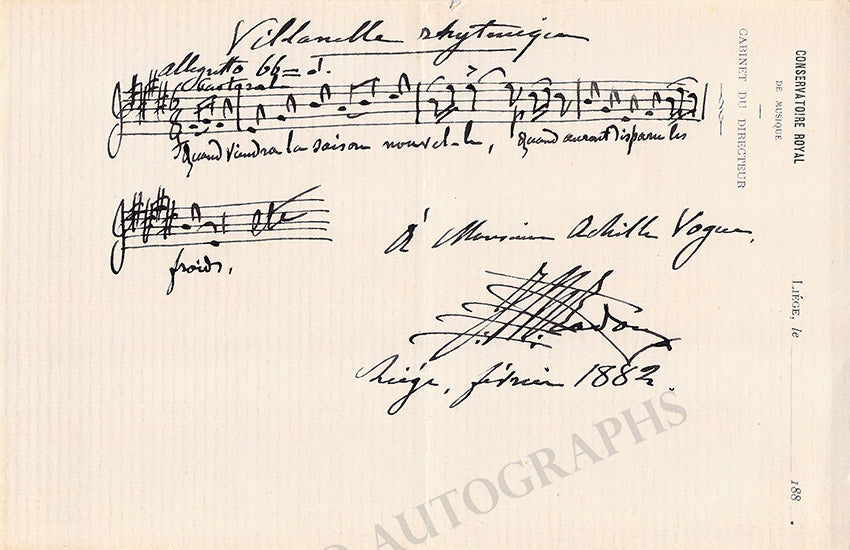 Villanelle rhytmique
allegretto 66 = ♩.
Quand viendra la saison nouvel-le, Quand auront disparu les
froids,
etc
À Monsieur Achille Vogue,
J. Th. Radoux
Liége, février 1882.
CONSERVATOIRE ROYAL
DE MUSIQUE
CABINET DU DIRECTEUR
LIÉGE, le
188 .
AUTOGRAPHS